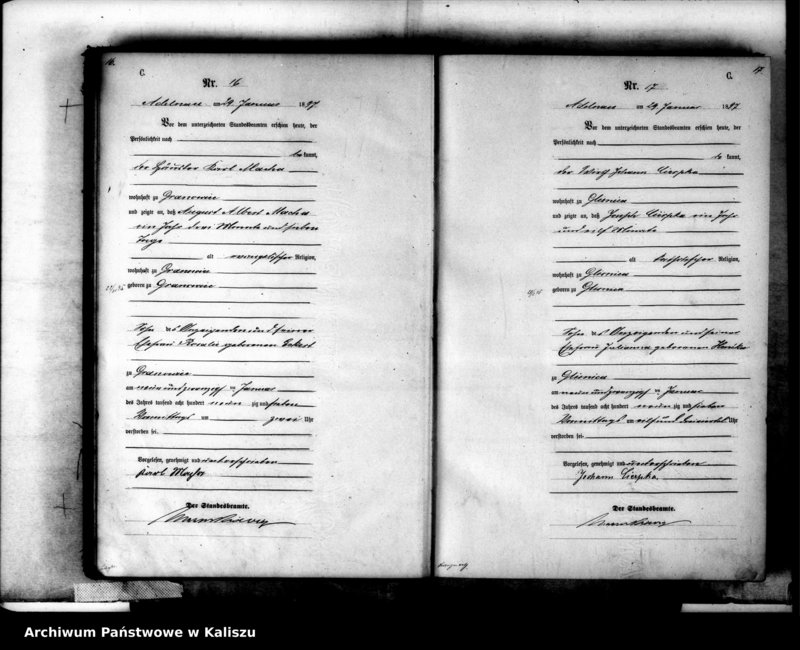 16.
C.
Nr. 16
Adelnau am 29 Januar 1897
Vor dem unterzeichneten Standesbeamten erschien heute, der
Persönlichkeit nach
be kannt,
der Häusler Karl Macha
wohnhaft zu Granowiec
und zeigte an, daß August Albert Macha
ein Jahr drei Monate und sieben
Tage
alt evangelischer Religion,
wohnhaft zu Granowiec
geboren zu Granowiec
Sohn des Anzeigenden und seiner
Ehefrau Rosalie geborenen
zu Granowiec
am neun und zwanzigsten Januar
des Jahres tausend acht hundert neun zig und sieben
Vormittags um zwei Uhr
verstorben sei.
Vorgelesen, genehmigt und unterschrieben
Karl Macha
Der Standesbeamte.
17.
C.
Nr. 17
Adelnau am 29 Januar 1897
Vor dem unterzeichneten Standesbeamten erschien heute, der
Persönlichkeit nach
be kannt,
der Wirth Johann Cierpka
wohnhaft zu Glisnica
und zeigte an, daß Joseph Cierpka ein Jahr
und elf Monate
alt katholischer Religion,
wohnhaft zu Glisnica
geboren zu Glisnica
Sohn des Anzeigenden und seiner
Ehefrau Julianna geborenen
zu Glisnica
am neun und zwanzigsten Januar
des Jahres tausend acht hundert neun zig und sieben
Vormittags um Uhr
verstorben sei.
Vorgelesen, genehmigt und unterschrieben
Johann Cierpka.
Der Standesbeamte.
Archiwum Państwowe w Kaliszu